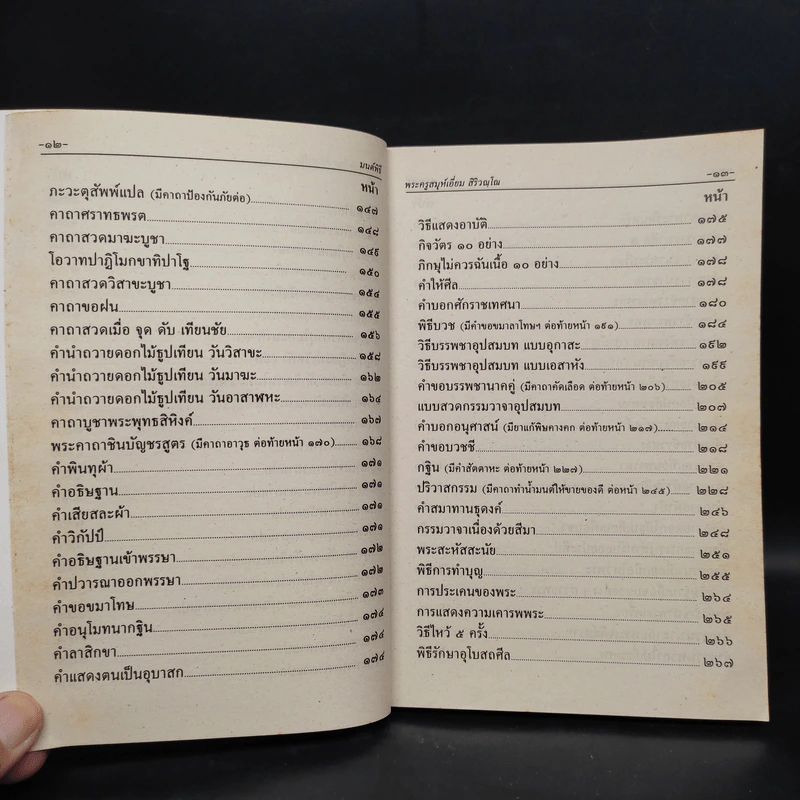 -๑๒-
มนต์พิธี
หน้า
ภะวะตุสัพพ์แปล (มีคาถาป้องกันภัยต่อ)........๑๔๗
คาถาศราทธพรต........๑๔๘
คาถาสวดมาฆะบูชา........๑๔๙
โอวาทปาฏิโมกขาทิปาโฐ........๑๕๐
คาถาสวดวิสาขะบูชา........๑๕๔
คาถาขอฝน........๑๕๕
คาถาสวดเมื่อ จุด ดับ เทียนชัย........๑๕๖
คำนำถวายดอกไม้ธูปเทียน วันวิสาขะ........๑๕๘
คำนำถวายดอกไม้ธูปเทียน วันมาฆะ........๑๖๒
คำนำถวายดอกไม้ธูปเทียน วันอาสาฬหะ........๑๖๔
คาถาบูชาพระพุทธสิหิงค์........๑๖๗
พระคาถาชินบัญชรสูตร (มีคาถาอาวุธ ต่อท้ายหน้า ๑๗๐)........๑๖๘
คำพินทุผ้า........๑๗๑
คำอธิษฐาน........๑๗๑
คำเสียสละผ้า........๑๗๑
คำวิกัปป์........๑๗๑
คำอธิษฐานเข้าพรรษา........๑๗๒
คำปวารณาออกพรรษา........๑๗๒
คำขอขมาโทษ........๑๗๓
คำอนุโมทนากฐิน........๑๗๔
คำลาสิกขา........๑๗๔
คำแสดงตนเป็นอุบาสก........๑๗๔
พระครูสมุห์เอี่ยม สิริวณฺโณ
-๑๓-
หน้า
วิธีแสดงอาบัติ........๑๗๕
กิจวัตร ๑๐ อย่าง........๑๗๗
ภิกษุไม่ควรฉันเนื้อ ๑๐ อย่าง........๑๗๘
คำให้ศีล........๑๗๘
คำบอกศักราชเทศนา........๑๘๐
พิธีบวช (มีคำขอขมาลาโทษฯ ต่อท้ายหน้า ๑๙๑)........๑๘๔
วิธีบรรพชาอุปสมบท แบบอุกาสะ........๑๙๒
วิธีบรรพชาอุปสมบท แบบเอสาหัง........๑๙๙
คำขอบรรพชานาคคู่ (มีคาถาคัดเลือด ต่อท้ายหน้า ๒๐๖)........๒๐๕
แบบสวดกรรมวาจาอุปสมบท........๒๐๗
คำบอกอนุศาสน์ (มียาแก้พิษคางคก ต่อท้ายหน้า ๒๑๗)........๒๑๔
คำขอบวชชี........๒๑๘
กฐิน (มีคำสัตตาหะ ต่อท้ายหน้า ๒๒๗)........๒๒๑
ปริวาสกรรม (มีคาถาทำน้ำมนต์ให้ขายของดี ต่อหน้า ๒๔๕)........๒๒๘
คำสมาทานธุดงค์........๒๔๖
กรรมวาจาเนื่องด้วยสีมา........๒๔๘
พระสะหัสสะนัย........๒๕๑
พิธีการทำบุญ........๒๕๕
การประเคนของพระ........๒๖๔
การแสดงความเคารพพระ........๒๖๕
วิธีไหว้ ๕ ครั้ง........๒๖๖
พิธีรักษาอุโบสถศีล........๒๖๗